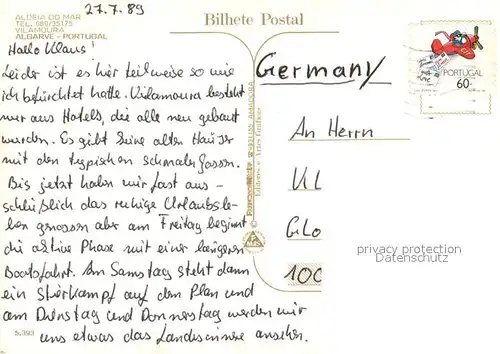 27.7.89
ALDEIA DO MAR
TEL. 089/35175
VILAMOURA
ALGARVE - PORTUGAL
Bilhete Postal
Hallo Klaus!
Leider ist es hier teilweise so wie
ich befürchtet hatte. Vilamoura besteht
nur aus Hotels, die alle neu gebaut
wurden. Es gibt keine alten Häuser
mit den typischen schmalen Gassen.
Bis jetzt haben wir fast aus-
schließlich das ruhige Urlaubsle-
ben genossen aber am Freitag beginnt
die aktive Phase mit einer längeren
Bootsfahrt. Am Samstag steht dann
ein Stierkampf auf dem Plan und
am Dienstag und Donnerstag werden wir
uns etwas das Landesinnere ansehen.
5.393
Editores e Artes Gráficas
Germany
PORTUGAL
60
An Herrn
Kl
Glo
100
privacy protection
Datenschutz